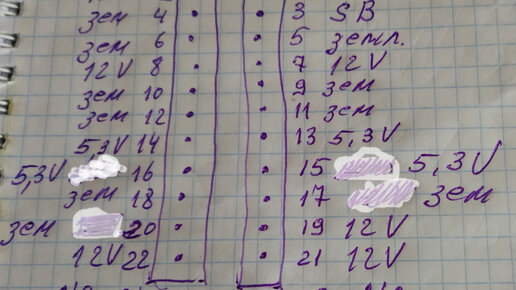 зем 4 3 SB
зем 6 5 земл.
12V 8 7 12V
зем 10 9 зем
зем 12 11 зем
5,3V 14 13 5,3V
5,3V 16 15 5,3V
зем 18 17 зем
зем 20 19 12V
12V 22 21 12V